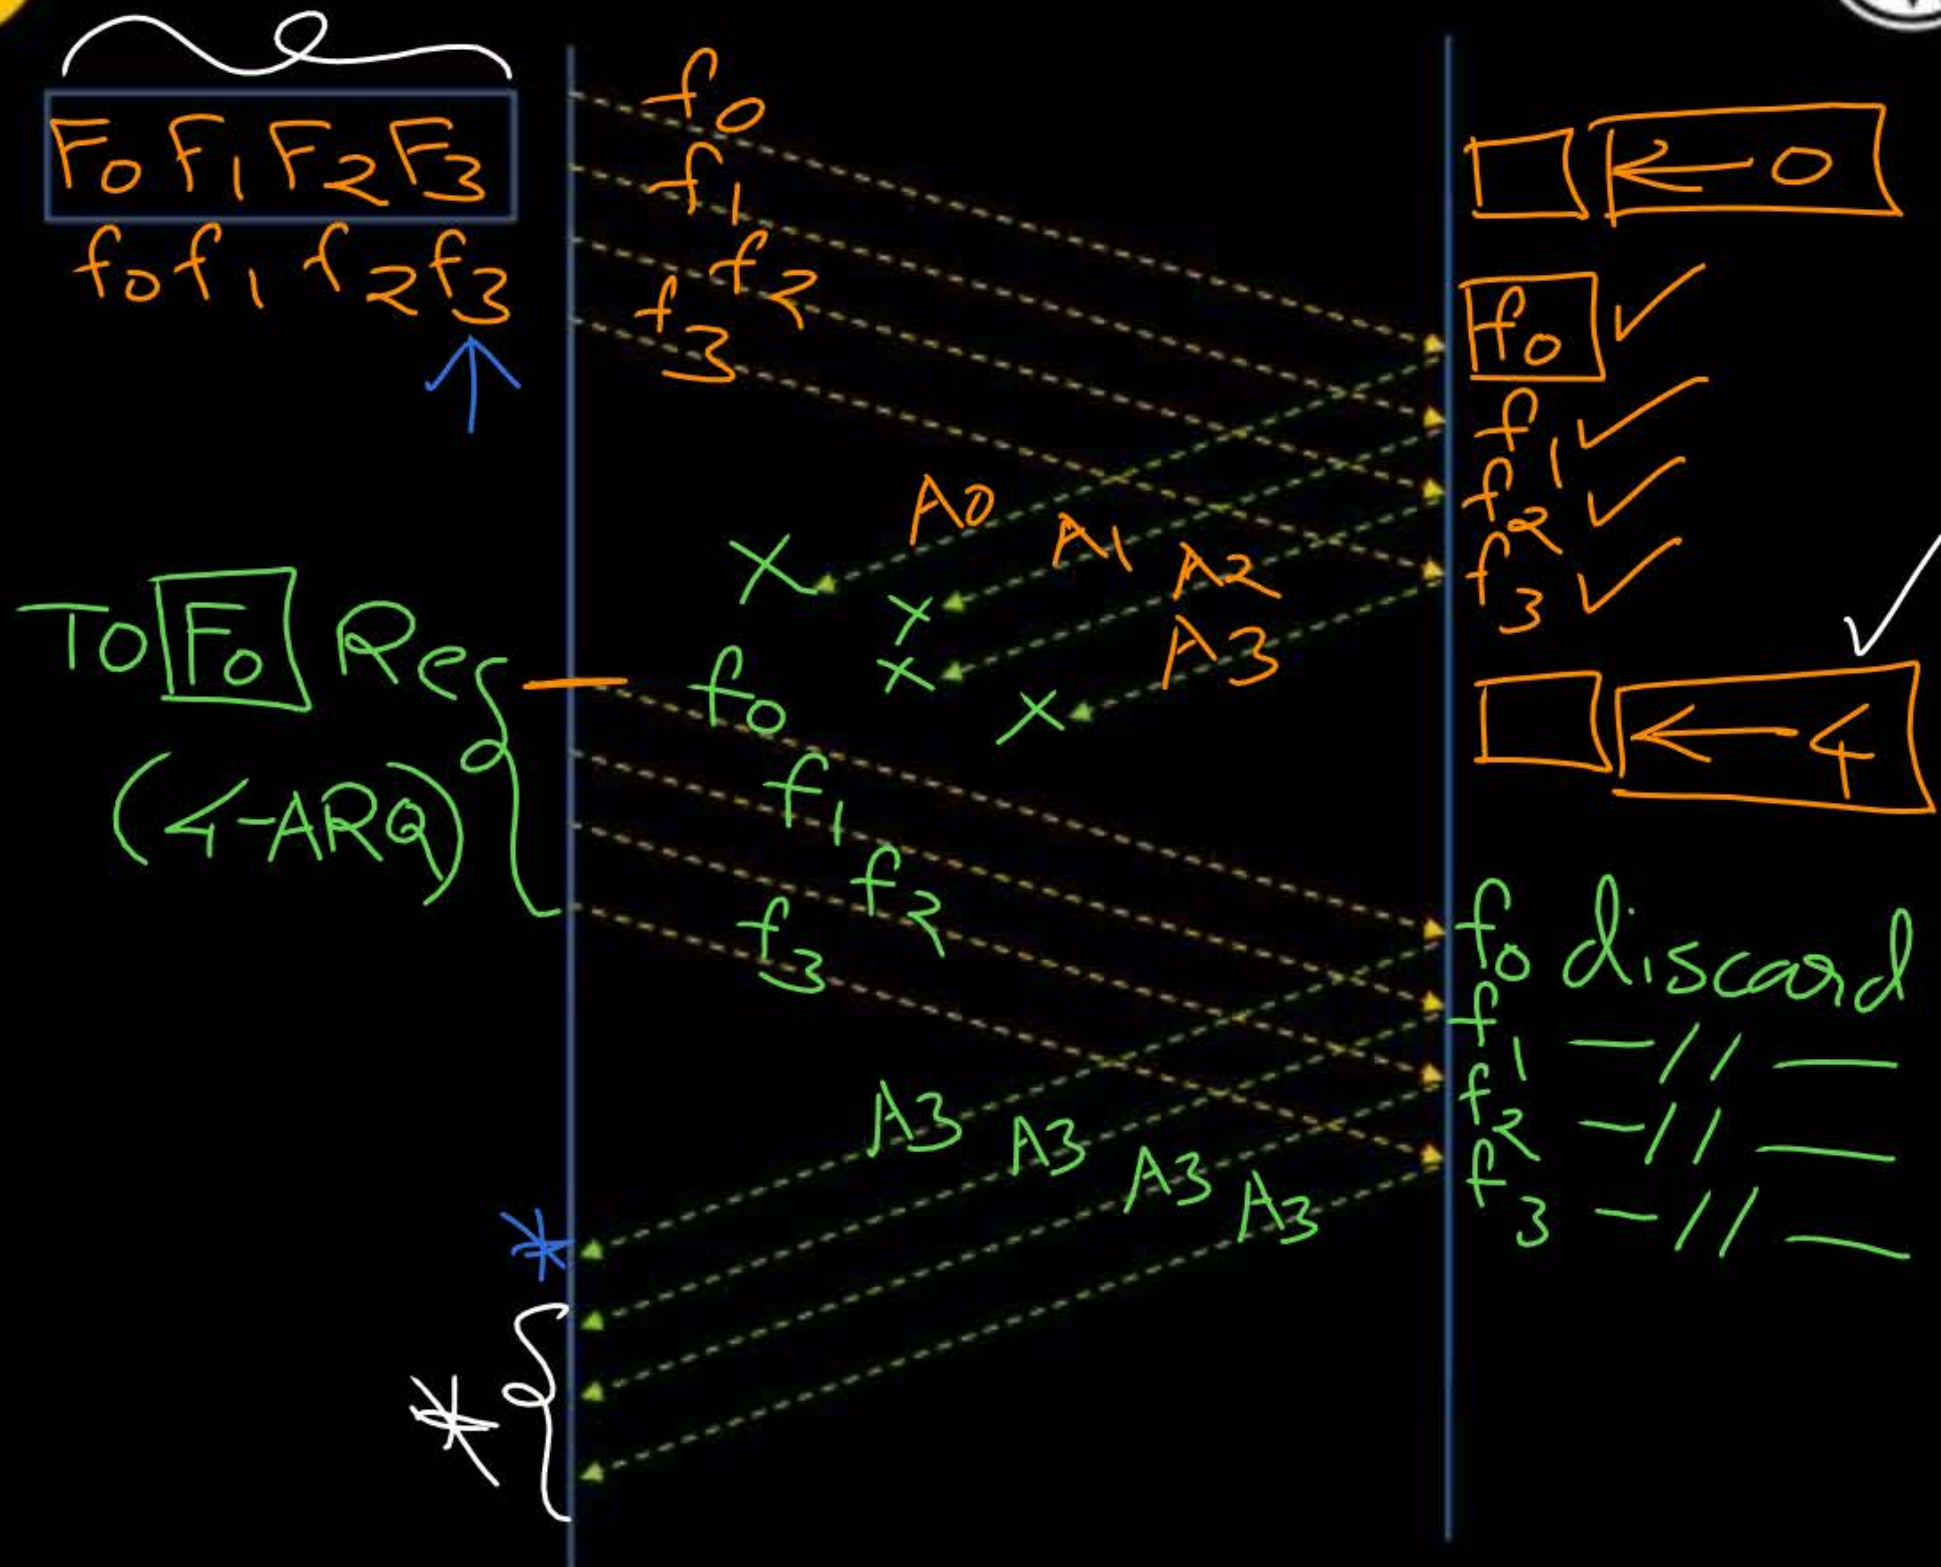 F0 F1 F2 F3
f0 f1 f2 f3
f0
f1
f2
f3
← 0
f0 ✓
f1 ✓
f2 ✓
f3 ✓
A0
A1
A2
A3
X
X
X
X
← 4
TO F0 Res
(4-ARQ)
f0
f1
f2
f3
f0 discard
f1 —//—
f2 —//—
f3 —//—
A3
A3
A3
A3
*
*